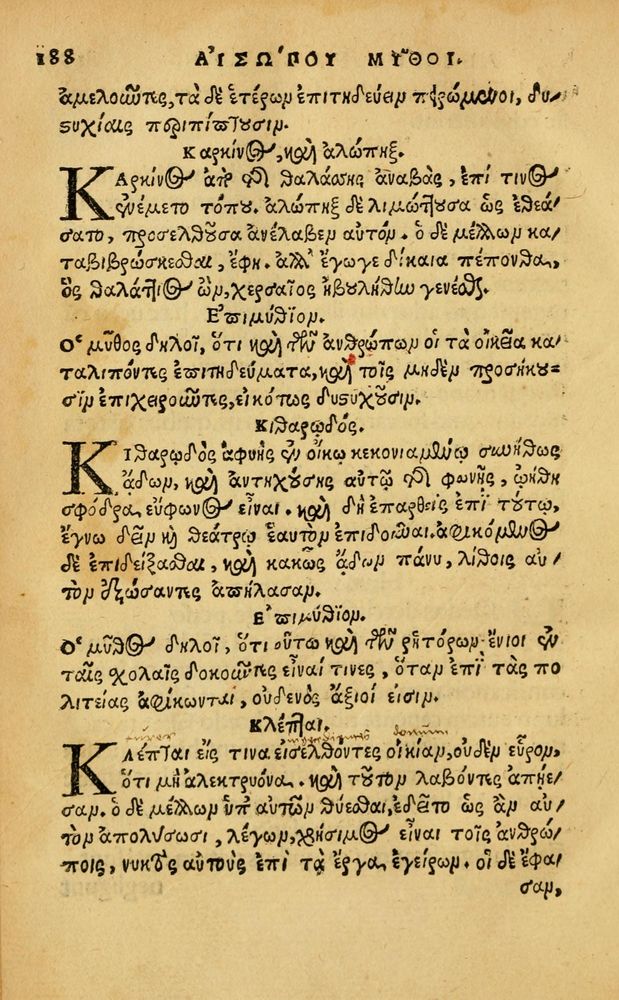 188 ΑΙ᾿ΣΩ΄ΠΟΥ ΜΥ῀ΘΟΙ.
ἀμελοῦντες, τὰ δὲ ἑτέρων ἐπιτηδεύειν πειρώμενοι, δυ/
στυχίαις περιπίπτουσιν.
Καρκίνος, καὶ ἀλώπηξ.
ΚΑρκίνος ἀπὸ τῆς θαλάσσης ἀναβὰς, ἐπί τινος
ἐνέμετο τόπου. ἀλώπηξ δὲ λιμώττουσα ὡς ἐθεά/
σατο, προσελθοῦσα ἀνέλαβεν αὐτόν. ὁ δὲ μέλλων κα/
ταβιβρώσκεσθαι, ἔφη. ἀλλ' ἔγωγε δίκαια πέπονθα,
ὃς θαλάττιος ὢν, χερσαῖος ἠβουλήθην γενέσθαι.
Ἐπιμύθιον.
Ὁ μῦθος δηλοῖ, ὅτι καὶ τῶν ἀνθρώπων οἱ τὰ οἰκεῖα κα/
ταλιπόντες ἐπιτηδεύματα, καὶ τοῖς μηδὲν προσήκου=
σιν ἐπιχειροῦντες, εἰκότως δυστυχοῦσιν.
Κιθαρῳδός.
ΚΙθαρῳδὸς ἀφυὴς ἐν οἴκῳ κεκονιαμένῳ συνήθως
ᾄδων, καὶ ἀντηχούσης αὐτῷ τῆς φωνῆς, ᾠήθη
σφόδρα εὔφωνος εἶναι. καὶ δὴ ἐπαρθεὶς ἐπὶ τούτῳ,
ἔγνω δεῖν καὶ θεάτρῳ ἑαυτὸν ἐπιδοῦναι. ἀφικόμενος
δὲ ἐπιδείξασθαι, καὶ κακῶς ᾄδων πάνυ, λίθοις αὐ/
τὸν ἐξώσαντες ἀπήλασαν.
Ἐπιμύθιον.
Ὁ μῦθος δηλοῖ, ὅτι οὕτω καὶ τῶν ῥητόρων ἔνιοι ἐν
ταῖς σχολαῖς δοκοῦντες εἶναί τινες, ὅταν ἐπὶ τὰς πο
λιτείας ἀφίκωνται, οὐδενὸς ἄξιοί εἰσιν.
Κλέπται.
ΚΛέπται εἴς τινα εἰσελθόντες οἰκίαν, οὐδὲν εὗρον,
ὅτι μὴ ἀλεκτρυόνα. καὶ τοῦτον λαβόντες ἀπῄε/
σαν. ὁ δὲ μέλλων ὑπ' αὐτῶν θύεσθαι, ἐδεῖτο ὡς ἂν αὐ/
τὸν ἀπολύσωσι, λέγων, χρήσιμος εἶναι τοῖς ἀνθρώ/
ποις, νυκτὸς αὐτοὺς ἐπὶ τὰ ἔργα ἐγείρων. οἱ δὲ ἔφα/
σαν,